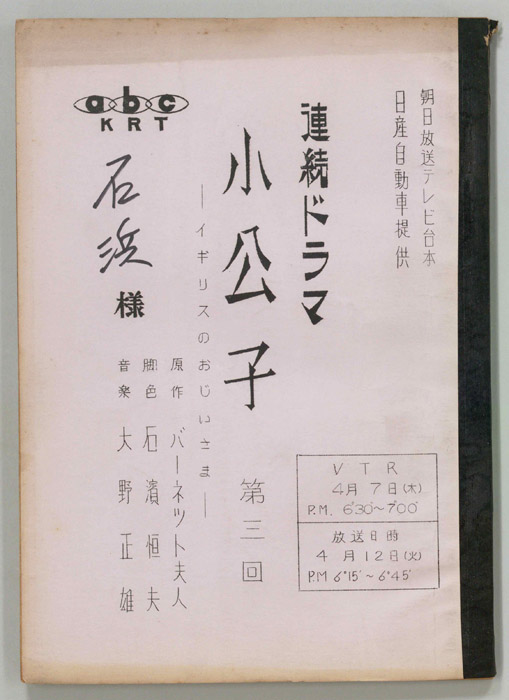 朝日放送テレビ台本
日産自動車提供
連続ドラマ
小公子
第三回
―イギリスのおじいさま―
原作 バーネット夫人
脚色 石濱恒夫
音楽 大野正雄
abc
KRT
石浜様
VTR
4月7日(木)
P.M. 6°30′~7°00′
放送日時
4月12日(火)
P.M 6°15′~6°45′